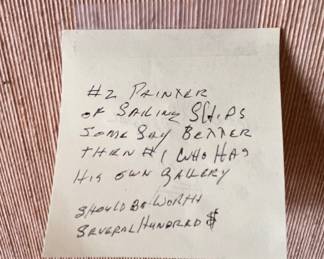 #2 PAINTER
OF SAILING SHIPS
SOME SAY BETTER
THEN #1 WHO HAS
HIS OWN GALLERY
SHOULD BE WORTH
SEVERAL HUNDRED $